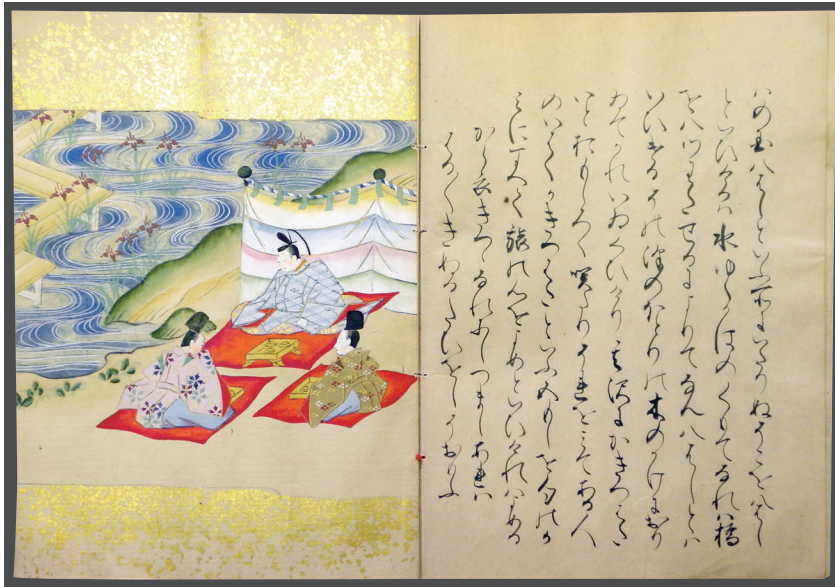 はの国八はしといふ所にいたりぬそこを八はし
といひけるハ水ゆくかはのくもてなれハ橋
を八つわたせるによりてなん八はしとは
いひけるその沢のほとりの木のかけにおり
ゐてかれいゐくひけりその沢にかきつはた
いとおもしろく咲たりそれをみてある人
のいはくかきつはたといふ五もしを句のか
みにすへて旅の心をよめといひけれハよめる
から衣きつゝなれにしつましあれハ
はる〱きぬるたひをしそおもふ